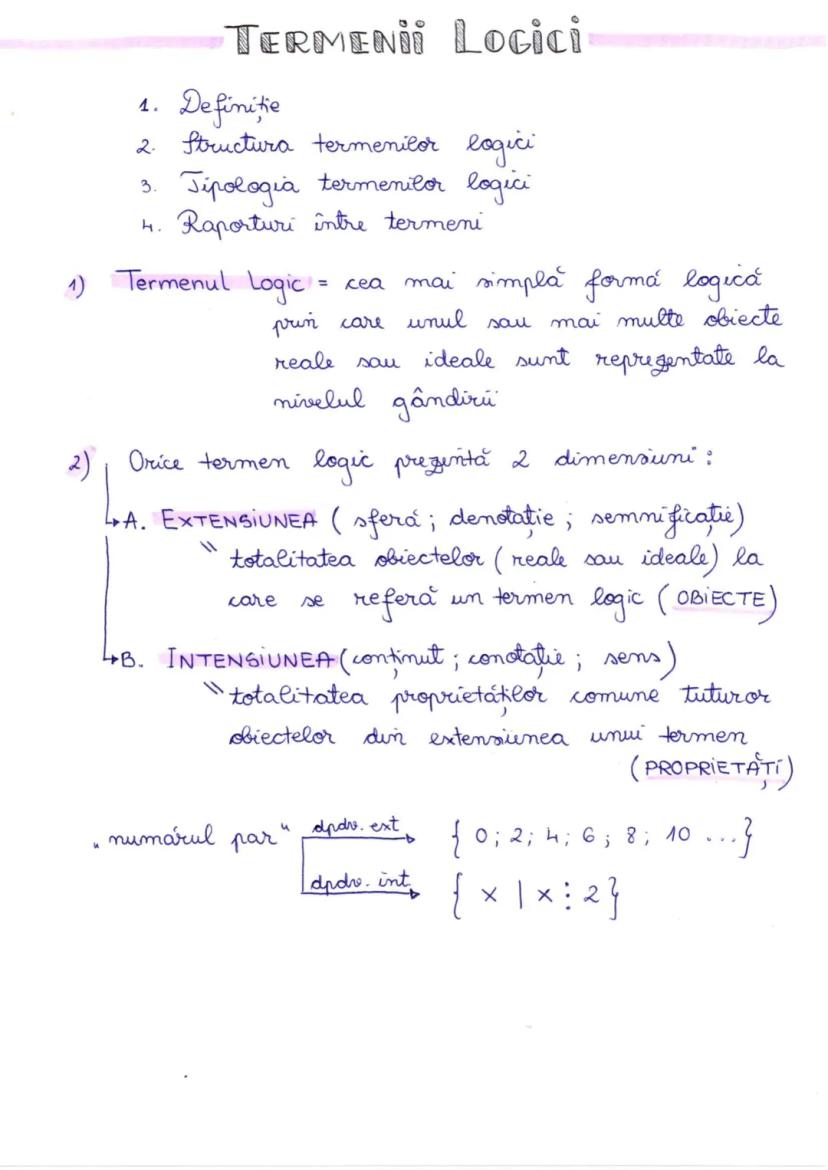 TERMENii LOGiCi
1. Definiție
2. Structura termenilor logici
3. Tipologia termenilor logici
4. Raporturi între termeni
1) Termenul Logic = cea mai simplă formă logică
prin care unul sau mai multe obiecte
reale sau ideale sunt reprezentate la
nivelul gândirii
2) Orice termen logic prezintă 2 dimensiuni :
A. EXTENSiUNEA ( sferă ; denotație ; semnificație)
" totalitatea obiectelor ( reale sau ideale) la
care se referă un termen logic ( OBiECTE)
B. INTENSiUNEA (conținut ; conotație ; sens)
" totalitatea proprietăților comune tuturor
obiectelor din extensiunea unui termen
(PROPRiETĂȚi)
„numărul par" dpdv. ext { 0; 2; 4; 6; 8; 10 ...}
dpdv. int. { x | x ⋮ 2}